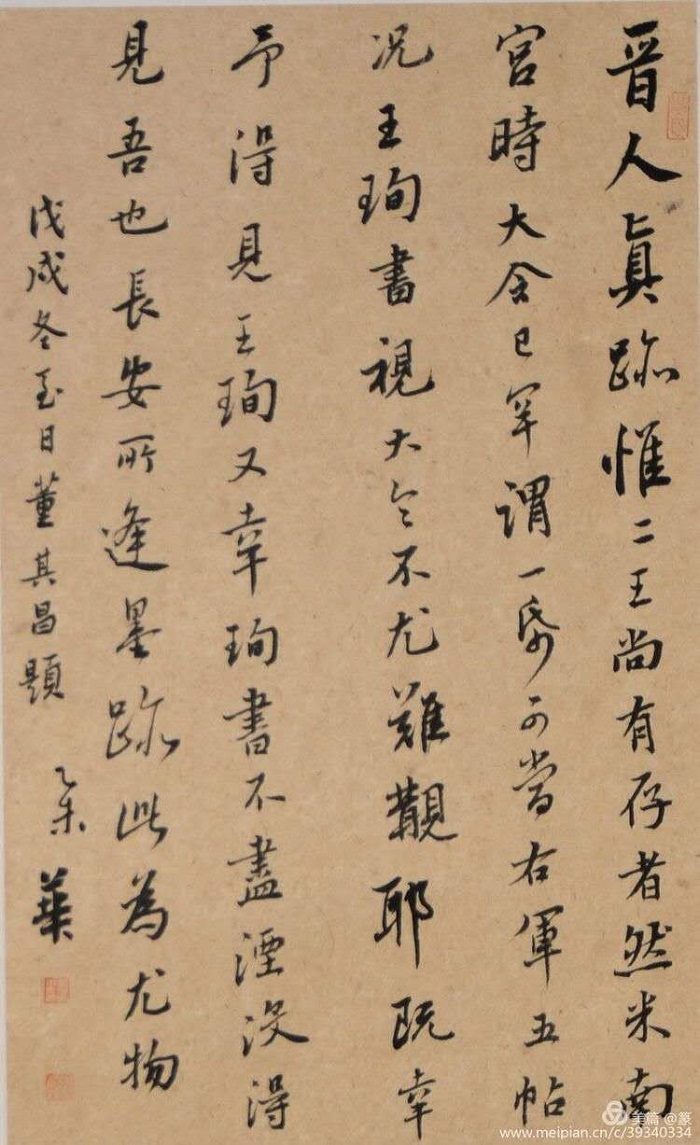 晉人真跡惟二王尚有存者然米南
宮時大令已罕謂一帋可當右軍五帖
况王珣書視大令不尤難覯耶既幸
予得見王珣又幸珣書不盡湮没得
見吾也長安所逢墨跡此為尤物
戊戌冬至日董其昌題 乙未 華
美篇 @篆
www.meipian.cn/c/39340334